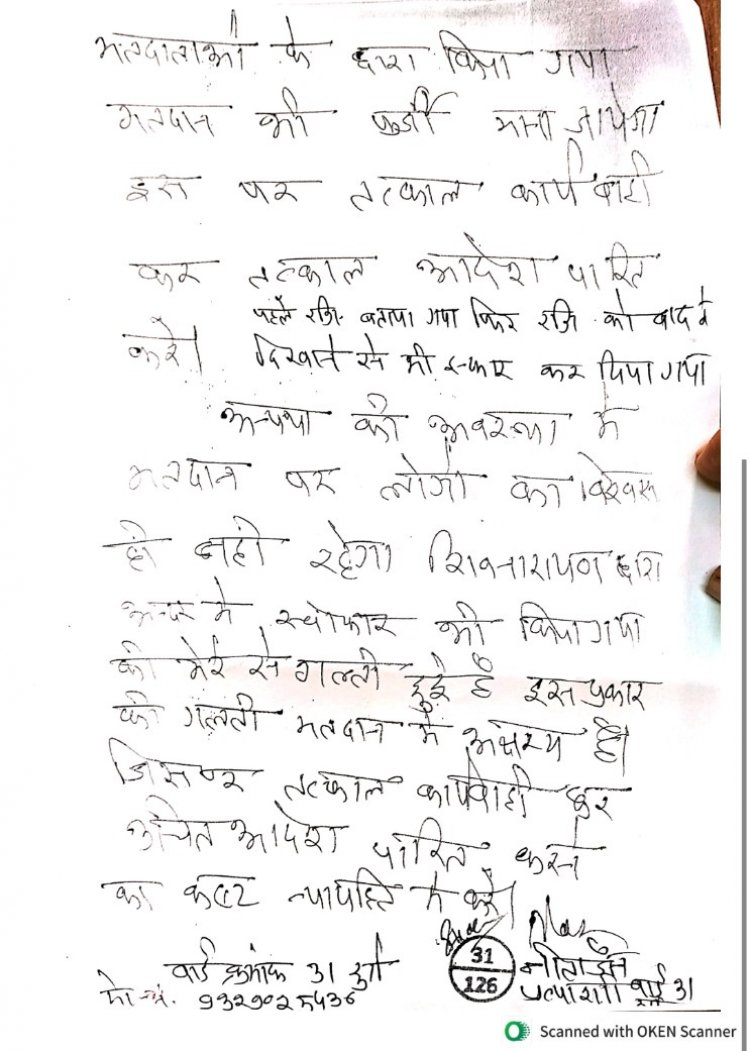 मतदाताओं के द्वारा किया गया
मतदान भी फर्जी माना जायेगा
इस पर तत्काल कार्यवाही
कर तत्काल आदेश पारित
पहले रजि. बताया गया फिर रजि को बाद में
करें। दिखाने से भी इन्कार कर दिया गया
अन्यथा की अवस्था में
मतदान पर लोगों का विश्वास
ही नहीं रहेगा शिवनारायण द्वारा
अन्दर में स्वीकार भी किया गया
की मेरे से गल्ती हुई है इस प्रकार
की गलती मतदान में अक्षम्य है।
जिसपर तत्काल कार्यवाही कर
उचित आदेश पारित करने
का कष्ट न्यायहित में करें।
वार्ड क्रमांक 31 दुर्ग
31
126
प्रत्याशी वार्ड 31
मो.नं.
Scanned with OKEN Scanner